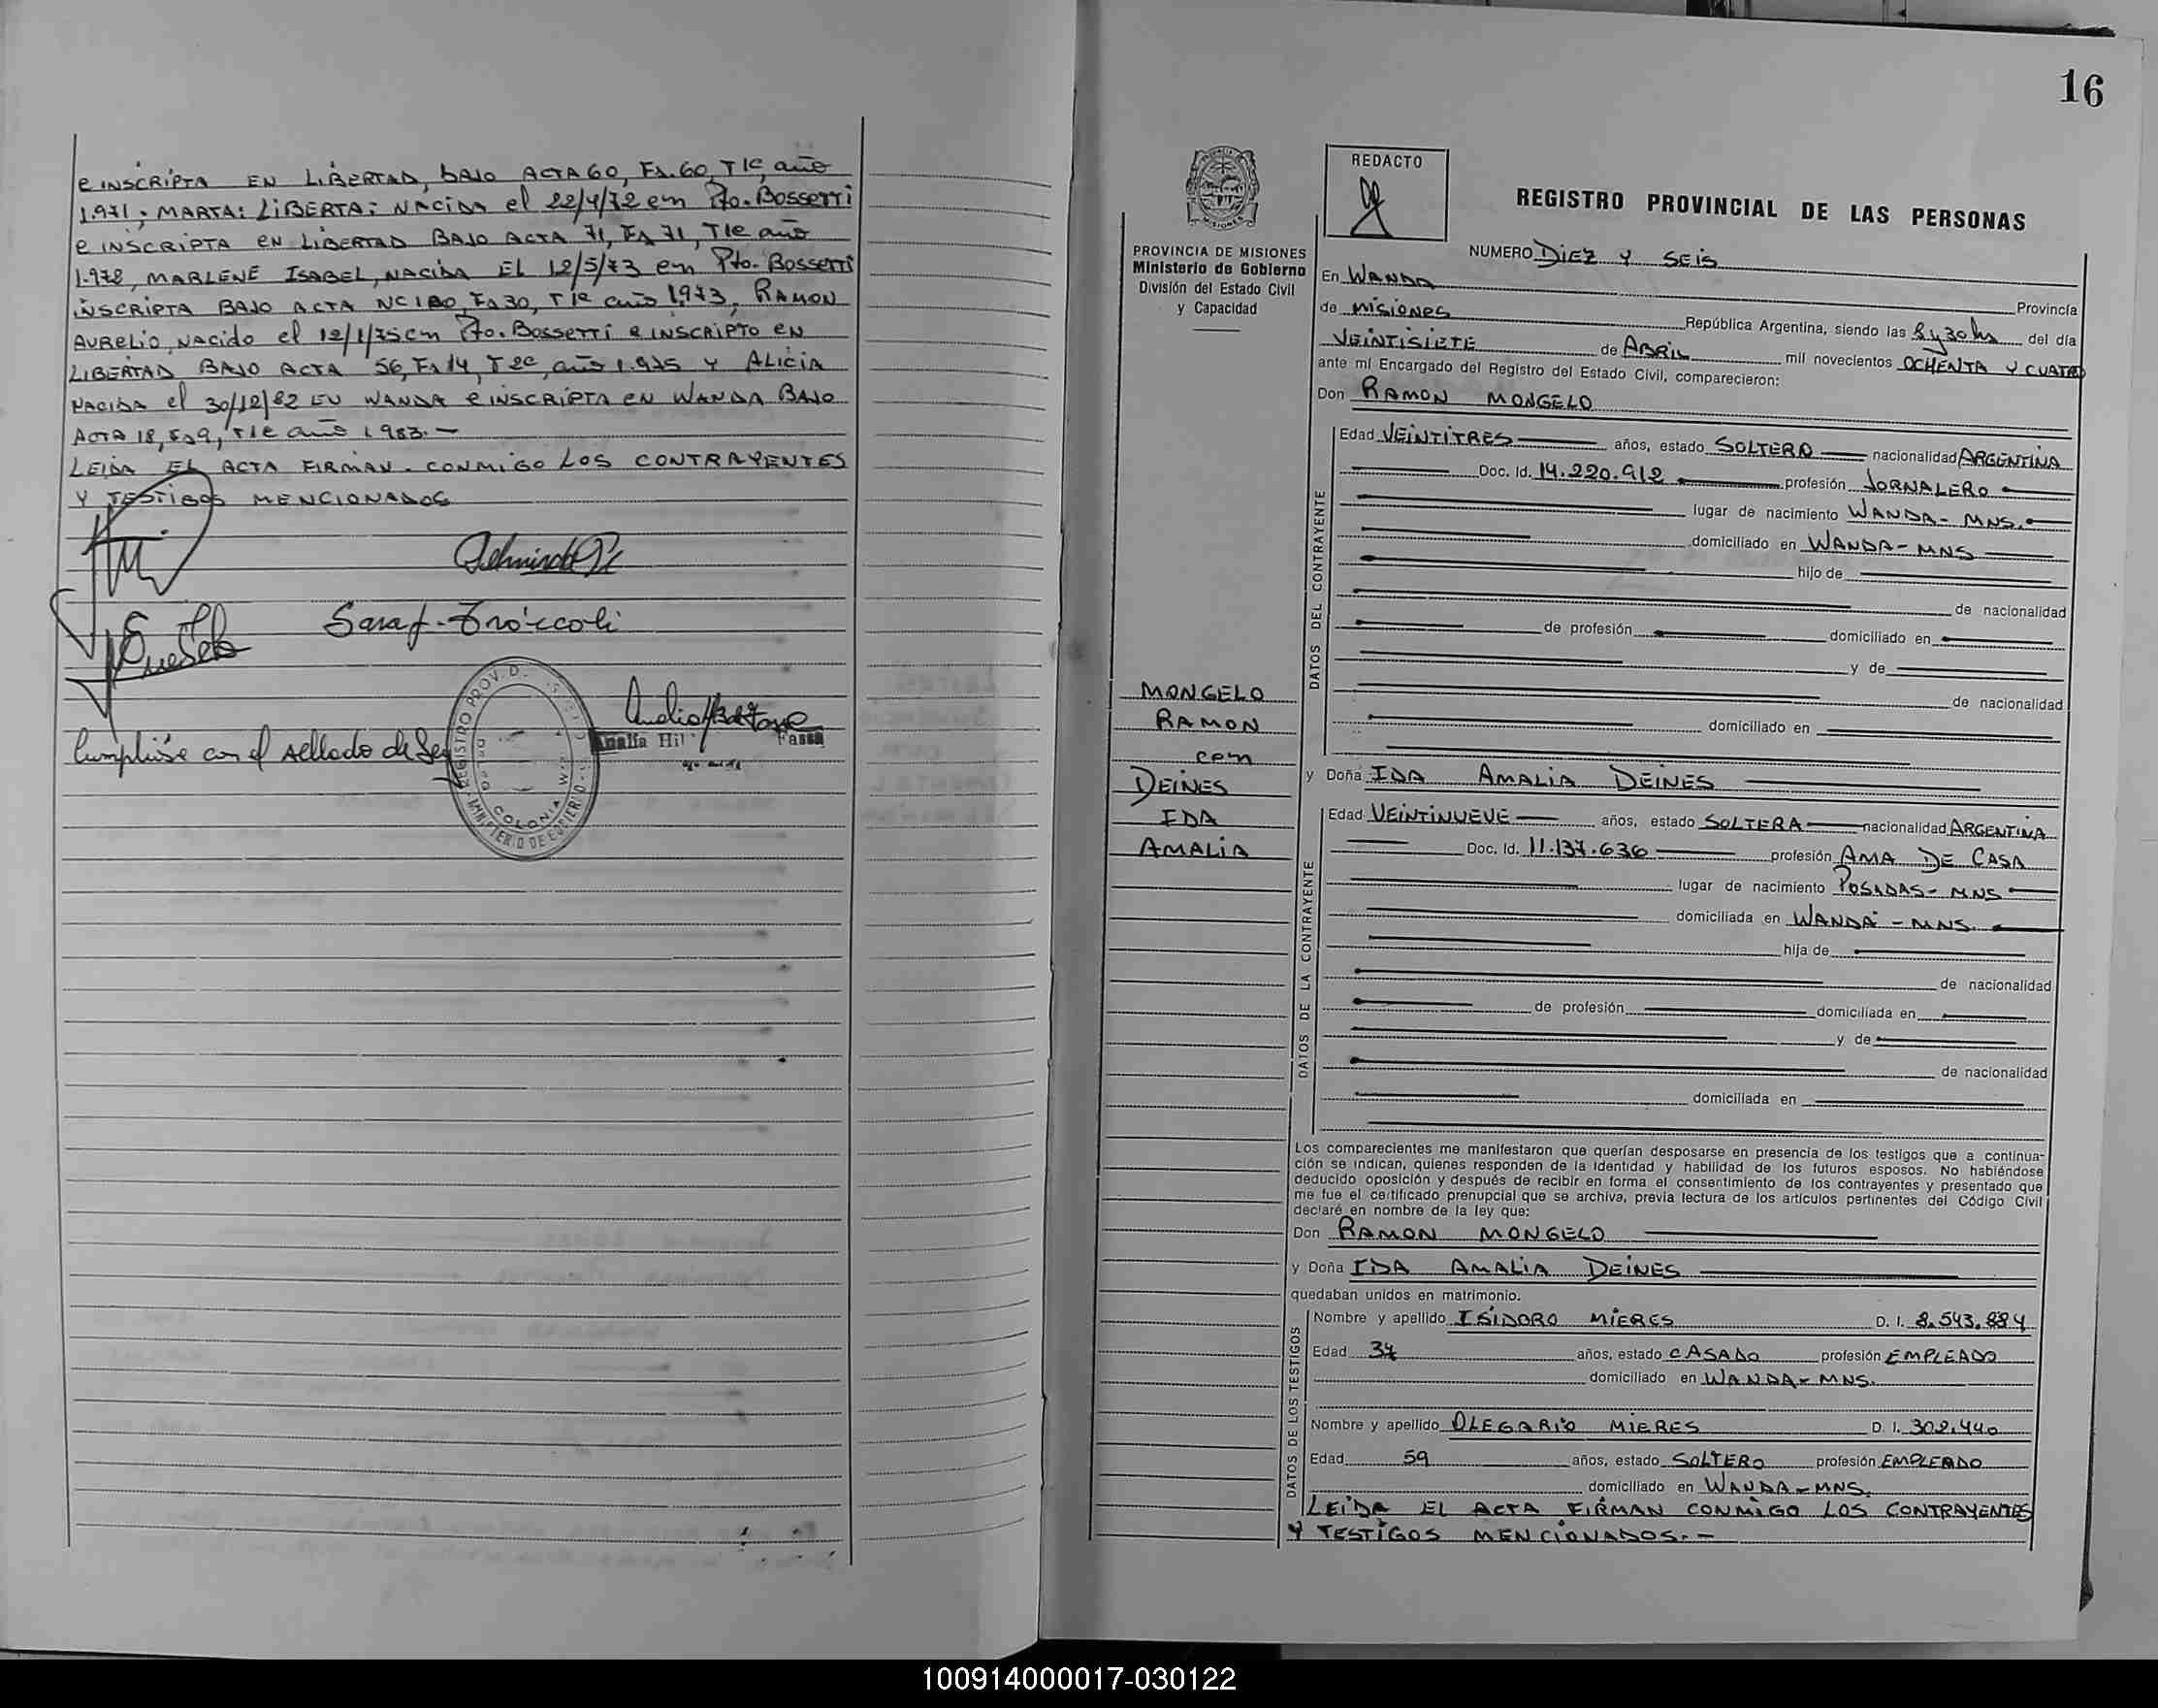 e INSCRIPTA EN LIBERTAD, BAJO ACTA 60, Fs. 60, T 1º, año
1.971; MARTA: LIBERTA: NACIDA el 22/4/72 em Pto. Bosserri
e INSCRIPTA EN LIBERTAD BAJO ACTA 71, Fs 71, T1º año
1.972, MARLENE ISABEL, NACIDA EL 12/5/73 em Pto. Bosserri
INSCRIPTA BAJO ACTA Nº 180, Fs 30, T 1º año 1973, RAMON
AURELIO, NACIDO el 12/1/75 em Pto. Bosserri e INSCRIPTO EN
LIBERTAD BAJO ACTA 56, Fs 14, T 2º, año 1.975 Y ALICIA
NACIDA el 30/12/82 EN WANDA e INSCRIPTA EN WANDA BAJO
ACTA 18, Fs 9, T1º año 1.983.-
LEIDA EL ACTA FIRMAN CONMIGO LOS CONTRAYENTES
Y TESTIGOS MENCIONADOS
Sara J. Tróccoli
Cumplióse con el sellado de
REGISTRO PROV. D.
COLONIA W
Analia Hil
16
REDACTO
REGISTRO PROVINCIAL DE LAS PERSONAS
PROVINCIA DE MISIONES
Ministerio de Gobierno
División del Estado Civil
y Capacidad
NUMERO DIEZ Y SEIS
En WANDA Provincia
de MISIONES República Argentina, siendo las 8 y 30 hs del día
VEINTISIETE de ABRIL mil novecientos OCHENTA Y CUATRO
ante mí Encargado del Registro del Estado Civil, comparecieron:
Don RAMON MONGELO
DATOS DEL CONTRAYENTE
Edad VEINTITRES años, estado SOLTERO nacionalidad ARGENTINA
Doc. Id. 14.220.912 profesión JORNALERO
lugar de nacimiento WANDA - MNS.
domiciliado en WANDA - MNS
hijo de
de nacionalidad
de profesión domiciliado en
y de
de nacionalidad
domiciliado en
MONGELO
RAMON
con
DEINES
IDA
AMALIA
y Doña IDA AMALIA DEINES
DATOS DE LA CONTRAYENTE
Edad VEINTINUEVE años, estado SOLTERA nacionalidad ARGENTINA
Doc. Id. 11.137.636 profesión AMA DE CASA
lugar de nacimiento POSADAS - MNS
domiciliada en WANDA - MNS.
hija de
de nacionalidad
de profesión domiciliada en
y de
de nacionalidad
domiciliada en
Los comparecientes me manifestaron que querían desposarse en presencia de los testigos que a continua-
ción se indican, quienes responden de la identidad y habilidad de los futuros esposos. No habiéndose
deducido oposición y después de recibir en forma el consentimiento de los contrayentes y presentado que
me fue el certificado prenupcial que se archiva, previa lectura de los artículos pertinentes del Código Civil
declaré en nombre de la ley que:
Don RAMON MONGELO
y Doña IDA AMALIA DEINES
quedaban unidos en matrimonio.
DATOS DE LOS TESTIGOS
Nombre y apellido ISIDORO MIERES D. I. 8.543.884
Edad 34 años, estado CASADO profesión EMPLEADO
domiciliado en WANDA - MNS.
Nombre y apellido OLEGARIO MIERES D. I. 302.440
Edad 59 años, estado SOLTERO profesión EMPLEADO
domiciliado en WANDA - MNS.
LEIDA EL ACTA FIRMAN CONMIGO LOS CONTRAYENTES
Y TESTIGOS MENCIONADOS.-
100914000017-030122